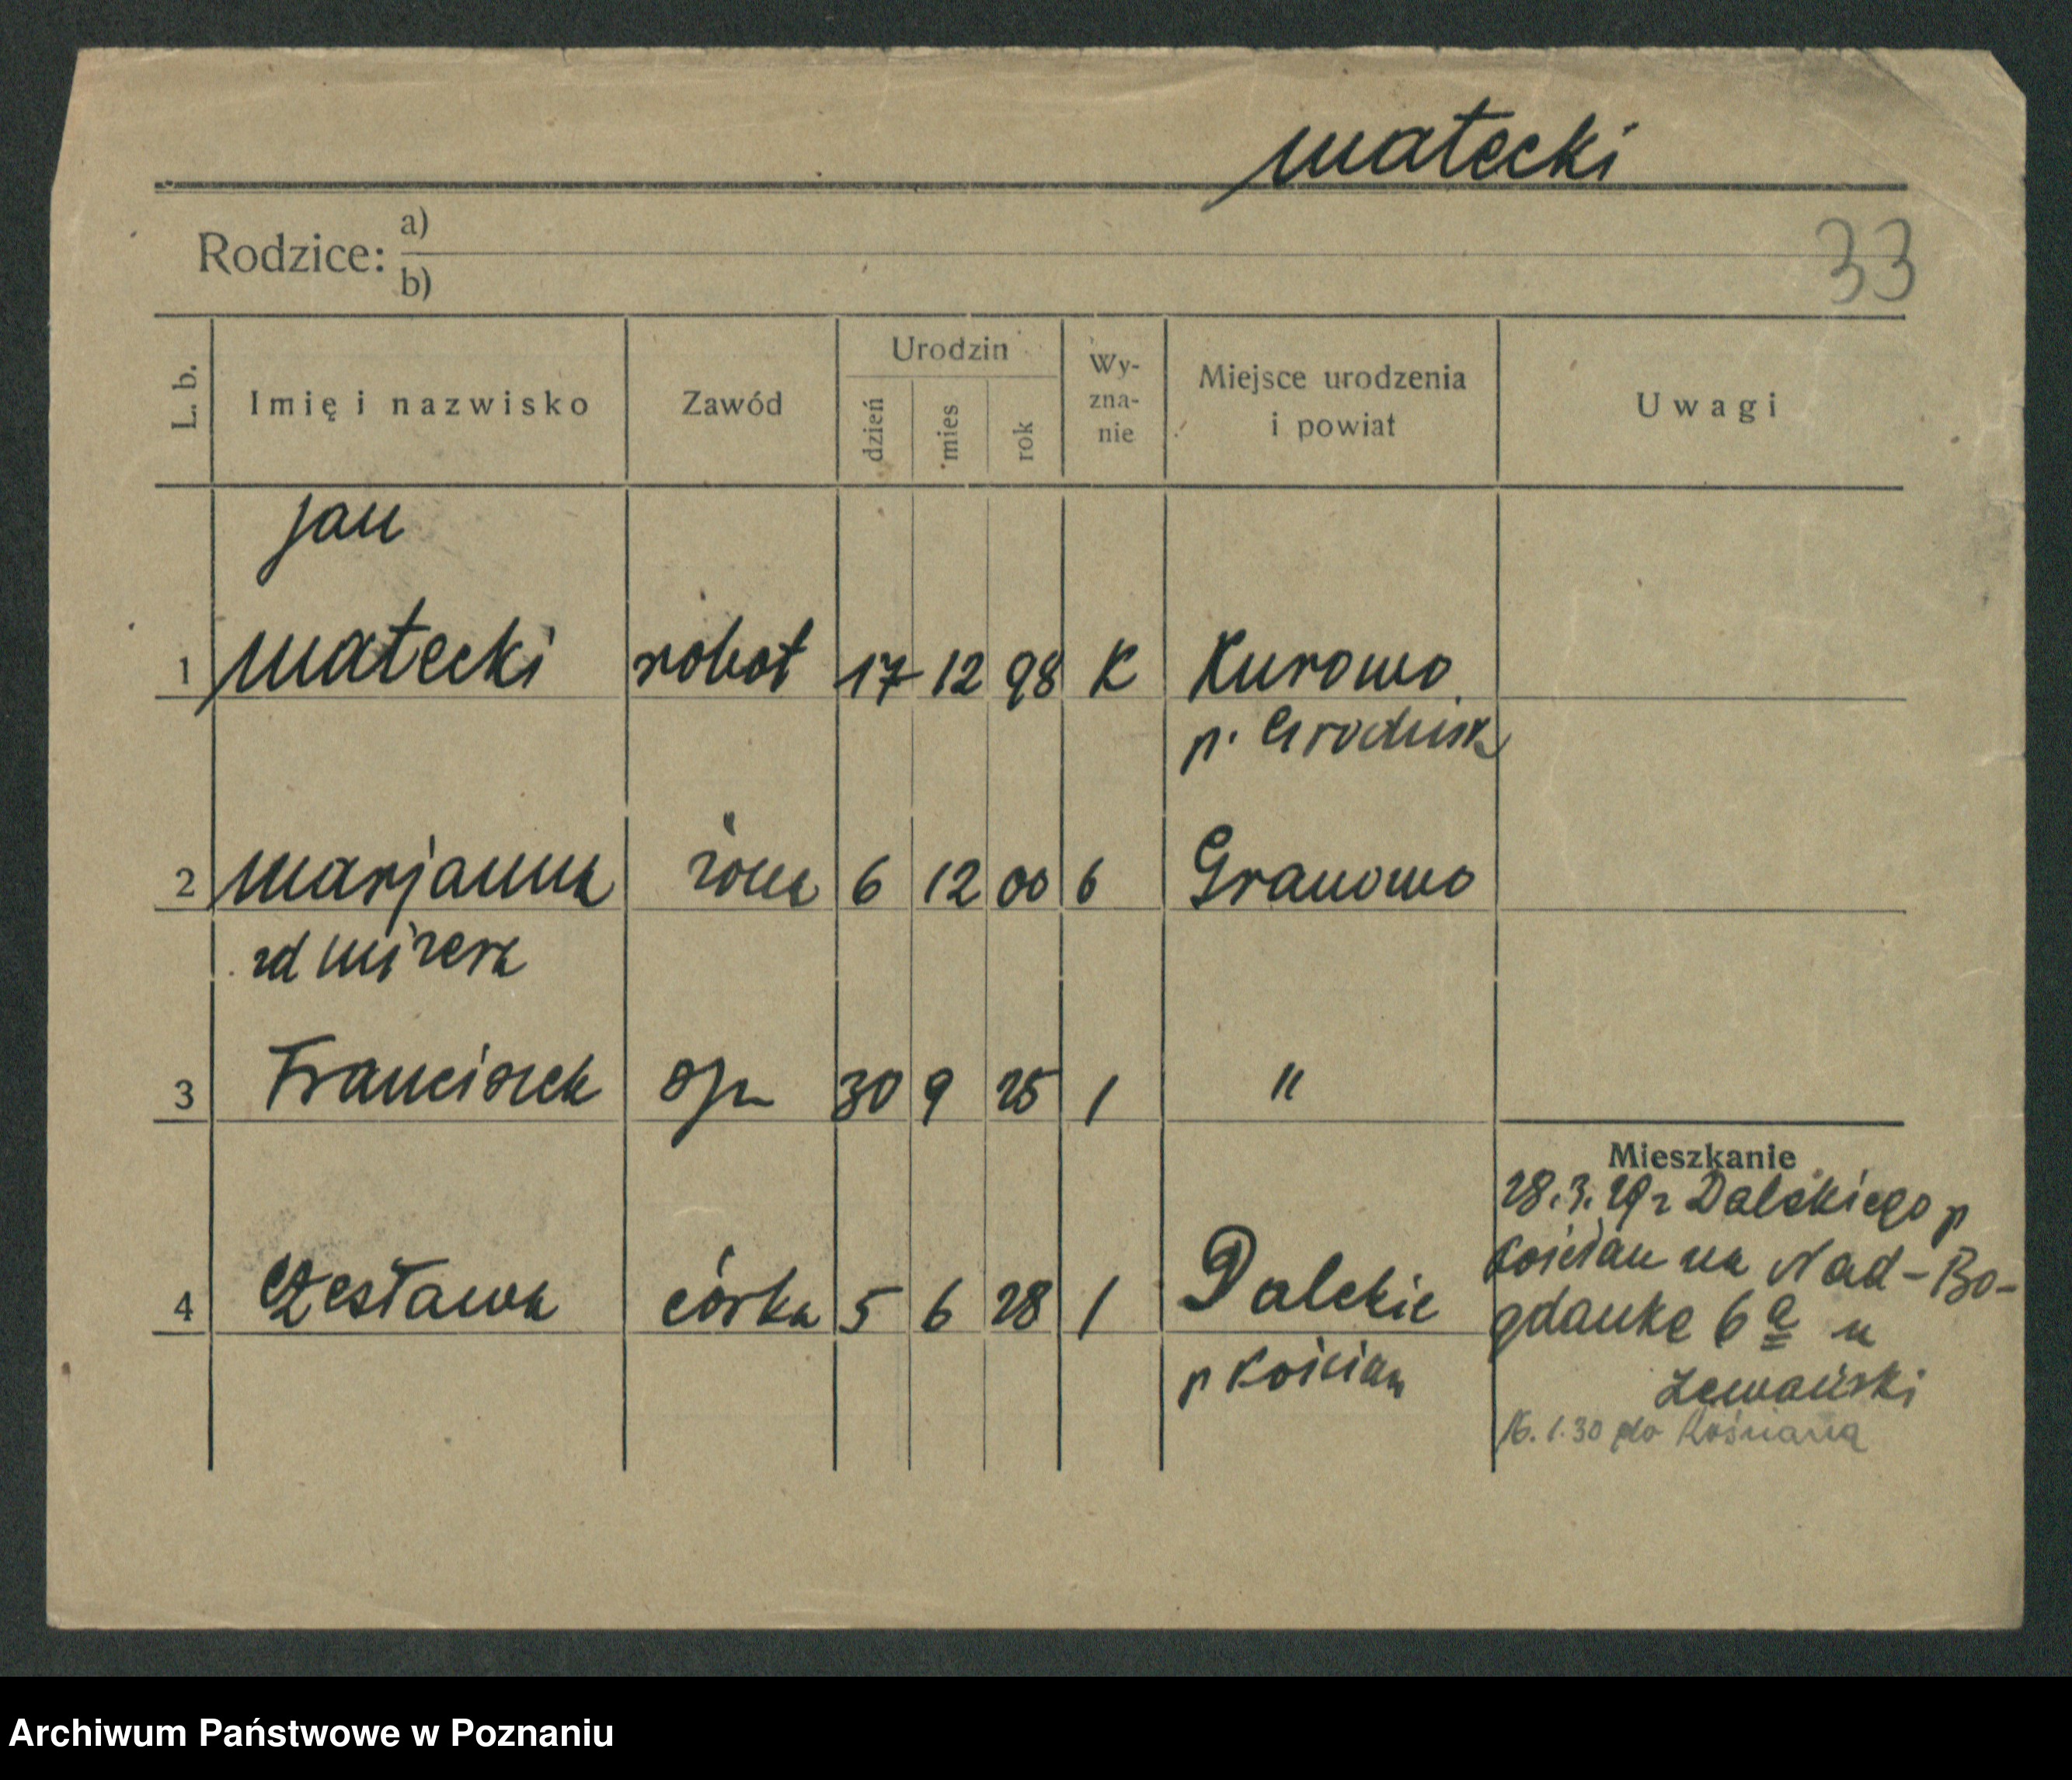 Małecki
Rodzice: a)
b)
33
L. b.
Imię i nazwisko
Zawód
Urodzin
dzień
mies
rok
Wy-
zna-
nie
Miejsce urodzenia
i powiat
Uwagi
Jan
1 Małecki robot 17 12 98 K Kurowo
p. Grodzisk
2 Marjanna żona 6 12 00 6 Granowo
zd Mizera
3 Franciszek syn 30 9 25 1 "
Mieszkanie
28.3.29 z Dalekiego p
Kościan na Nad-Bo-
gdanke 6 a u
4 Czesława córka 5 6 28 1 Dalekie
p Kościan
16.1.30 do Kościana
Archiwum Państwowe w Poznaniu